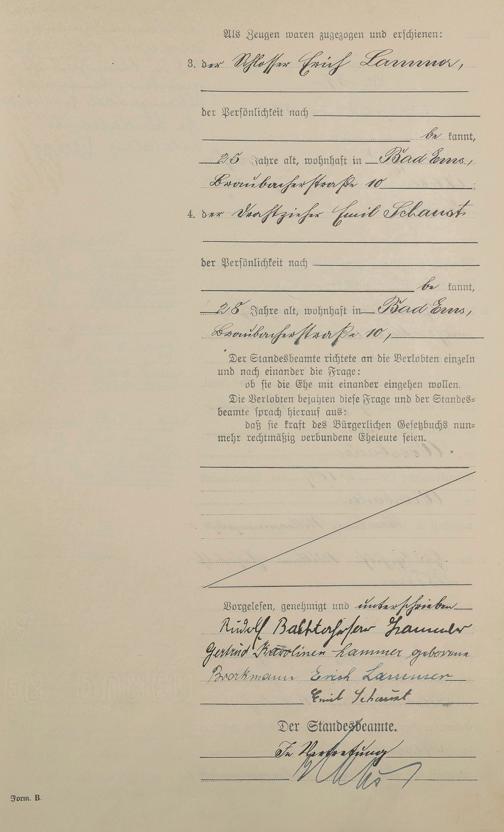 Als Zeugen waren zugezogen und erschienen:
3. der Schlosser Erich Lammer,
der Persönlichkeit nach
be kannt,
25 Jahre alt, wohnhaft in Bad Ems,
Braubacherstraße 10
4. der Drahtzieher Emil Schaust
der Persönlichkeit nach
be kannt,
28 Jahre alt, wohnhaft in Bad Ems,
Braubacherstraße 10,
Der Standesbeamte richtete an die Verlobten einzeln
und nach einander die Frage:
ob sie die Ehe mit einander eingehen wollen.
Die Verlobten bejahten diese Frage und der Standes-
beamte sprach hierauf aus:
daß sie kraft des Bürgerlichen Gesetzbuchs nun-
mehr rechtmäßig verbundene Eheleute seien.
Vorgelesen, genehmigt und unterschrieben
Rudolf Lammer
Gertrud Karolinen Lammer geborene
Brockmann Erich Lammer
Emil Schaust
Der Standesbeamte.
In Vertretung
Form. B.